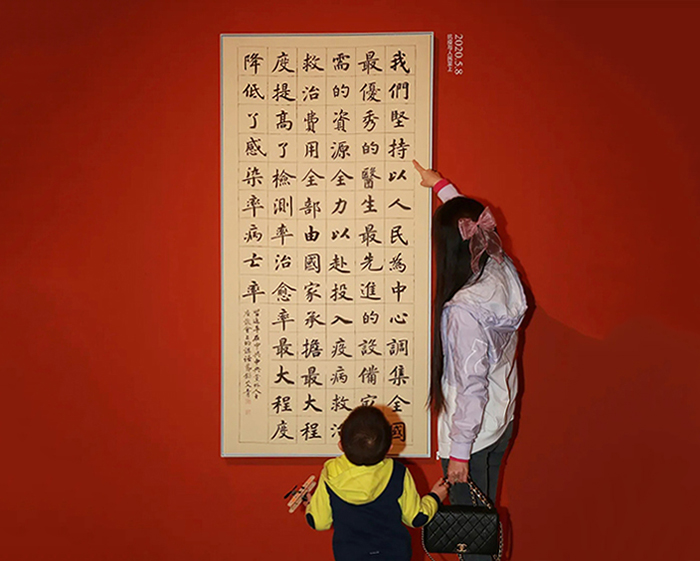 我們堅持以人民為中心調集全國
最優秀的醫生最先進的設備冣
需的資源全力以赴投入疫病救治
救治費用全部由國家承擔最大程
度提高了檢測率治愈率最大程度
降低了感染率病亡率
2020.5.8